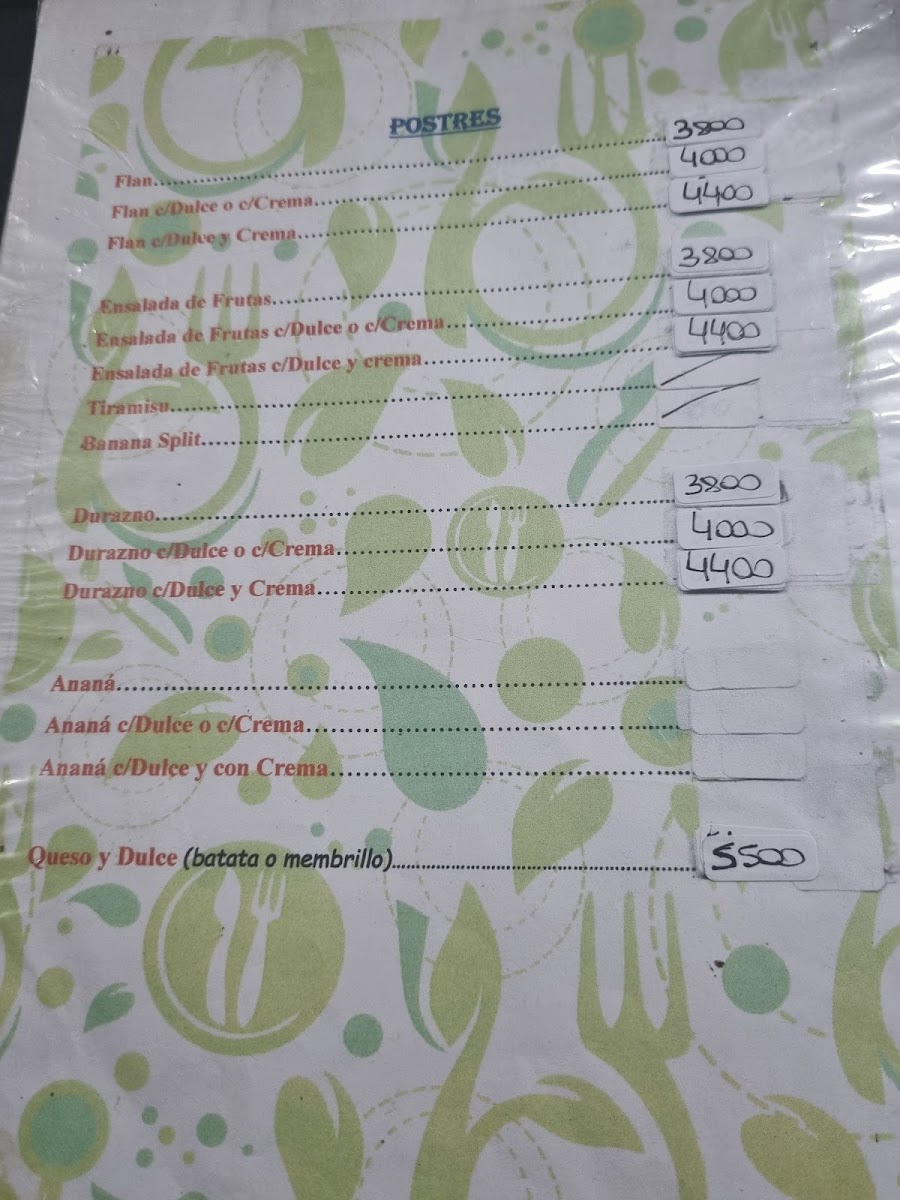 POSTRES
Flan........................ 3800
Flan c/Dulce o c/Crema........................ 4000
Flan c/Dulve y Crema........................ 4400
Ensalada de Frutas........................ 3800
Ensalada de Frutas c/Dulce o c/Crema........................ 4000
Ensalada de Frutas c/Dulce y crema........................ 4400
Tiramisu........................
Banana Split........................
Durazno........................ 3800
Durazno c/Dulce o c/Crema........................ 4000
Durazno c/Dulce y Crema........................ 4400
Ananá........................
Ananá c/Dulce o c/Crema........................
Ananá c/Dulce y con Crema........................
Queso y Dulce (batata o membrillo)........................ 5500